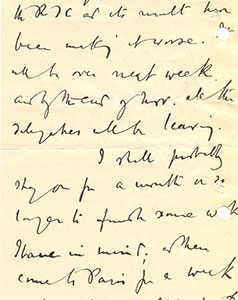 the R.T.C. as its result have
been making it worse.
will be over next week.
and by the end of Nov. all the
delegates will be leaving.
I shall probably
stay on for a month or so
longer to finish some work
I have in mind; & then
come to Paris for a week